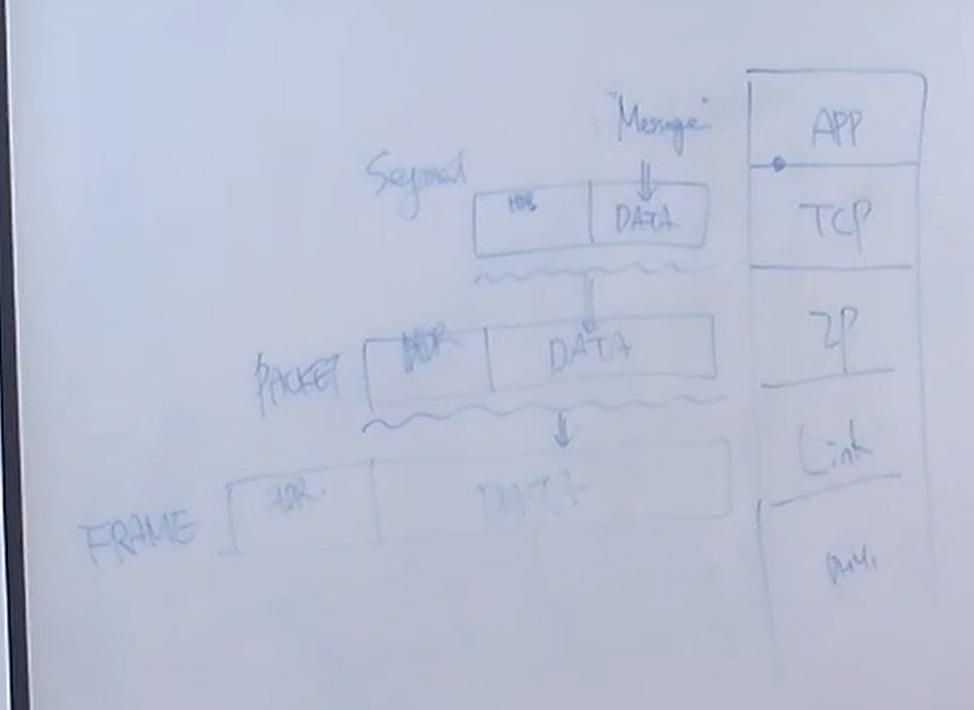 "Message"
Segment
HDR DATA
PACKET
HDR DATA
FRAME
HDR DATA
APP
TCP
IP
Link